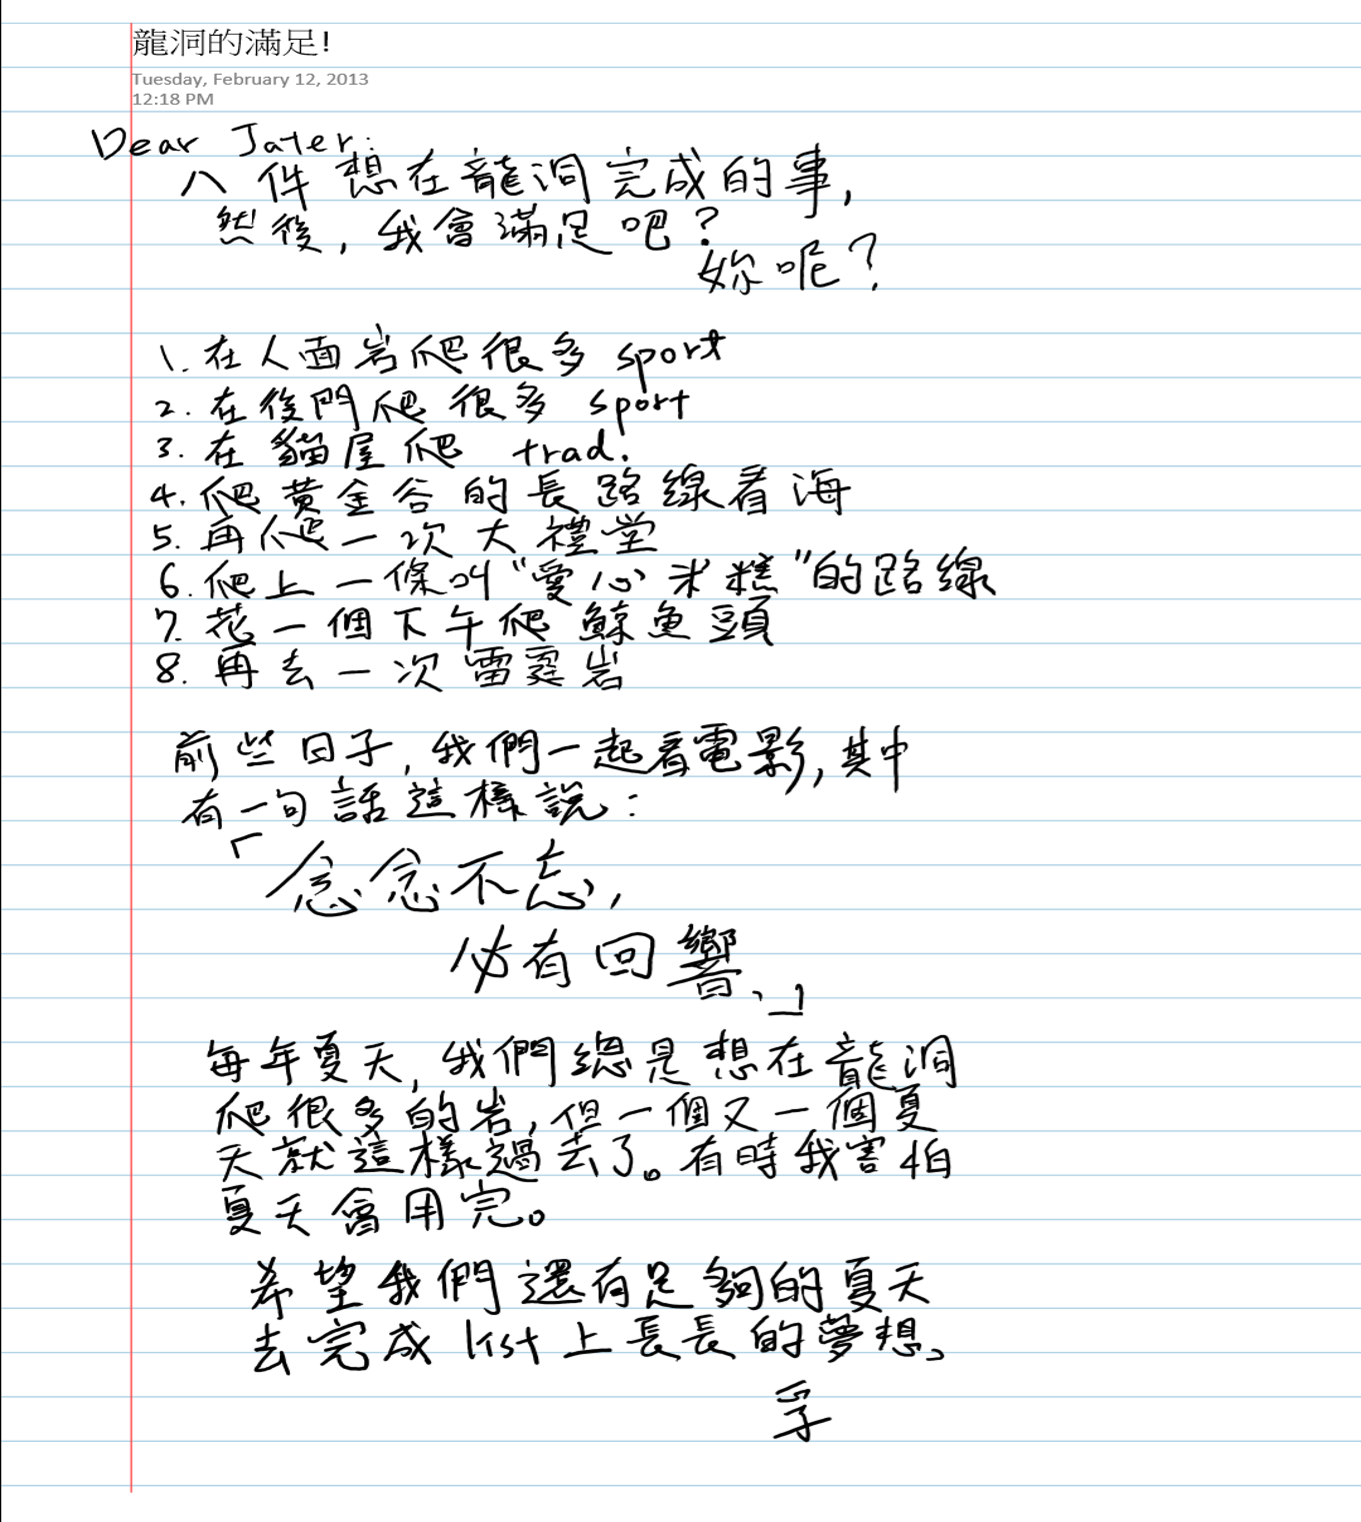 龍洞的滿足!
Tuesday, February 12, 2013
12:18 PM
Dear Jater:
八件想在龍洞完成的事,
然後,我會滿足吧?
妳呢?
1. 在人面岩爬很多 sport
2. 在後門爬很多 sport
3. 在貓屋爬 trad.
4. 爬黃金谷的長路線看海
5. 再爬一次大禮堂
6. 爬上一條叫"愛心米糕"的路線
7. 花一個下午爬鯨魚頭
8. 再去一次雷霆岩
前些日子,我們一起看電影,其中
有一句話這樣說:
「念念不忘,
必有回響、」
每年夏天,我們總是想在龍洞
爬很多的岩,但一個又一個夏
天就這樣過去了。有時我害怕
夏天會用完。
希望我們還有足夠的夏天
去完成 list 上長長的夢想、
孚